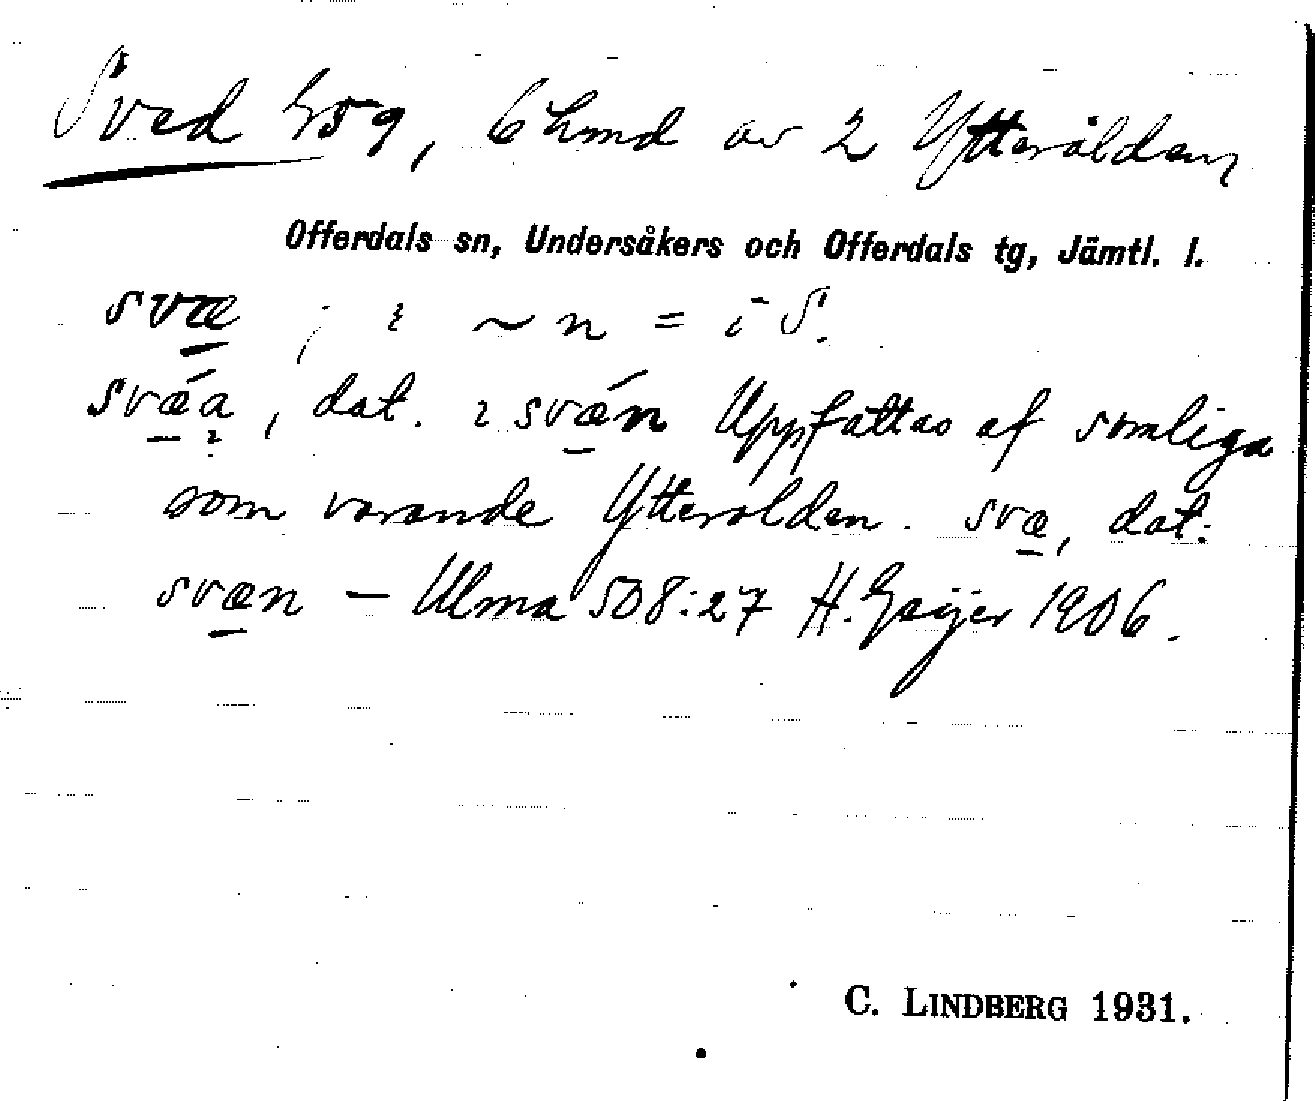 Sved by, 6 hmd av 2 Ytterålden
Offerdals sn, Undersåkers och Offerdals tg, Jämtl. l.
svæ ; ~ n = i S.
svǽa, dat. svǽn Uppfattas af somliga
som varande Ytterolden. svæ, dat.
svæn — Ulma 508:27 H. Geijer 1906.
C. LINDBERG 1931.